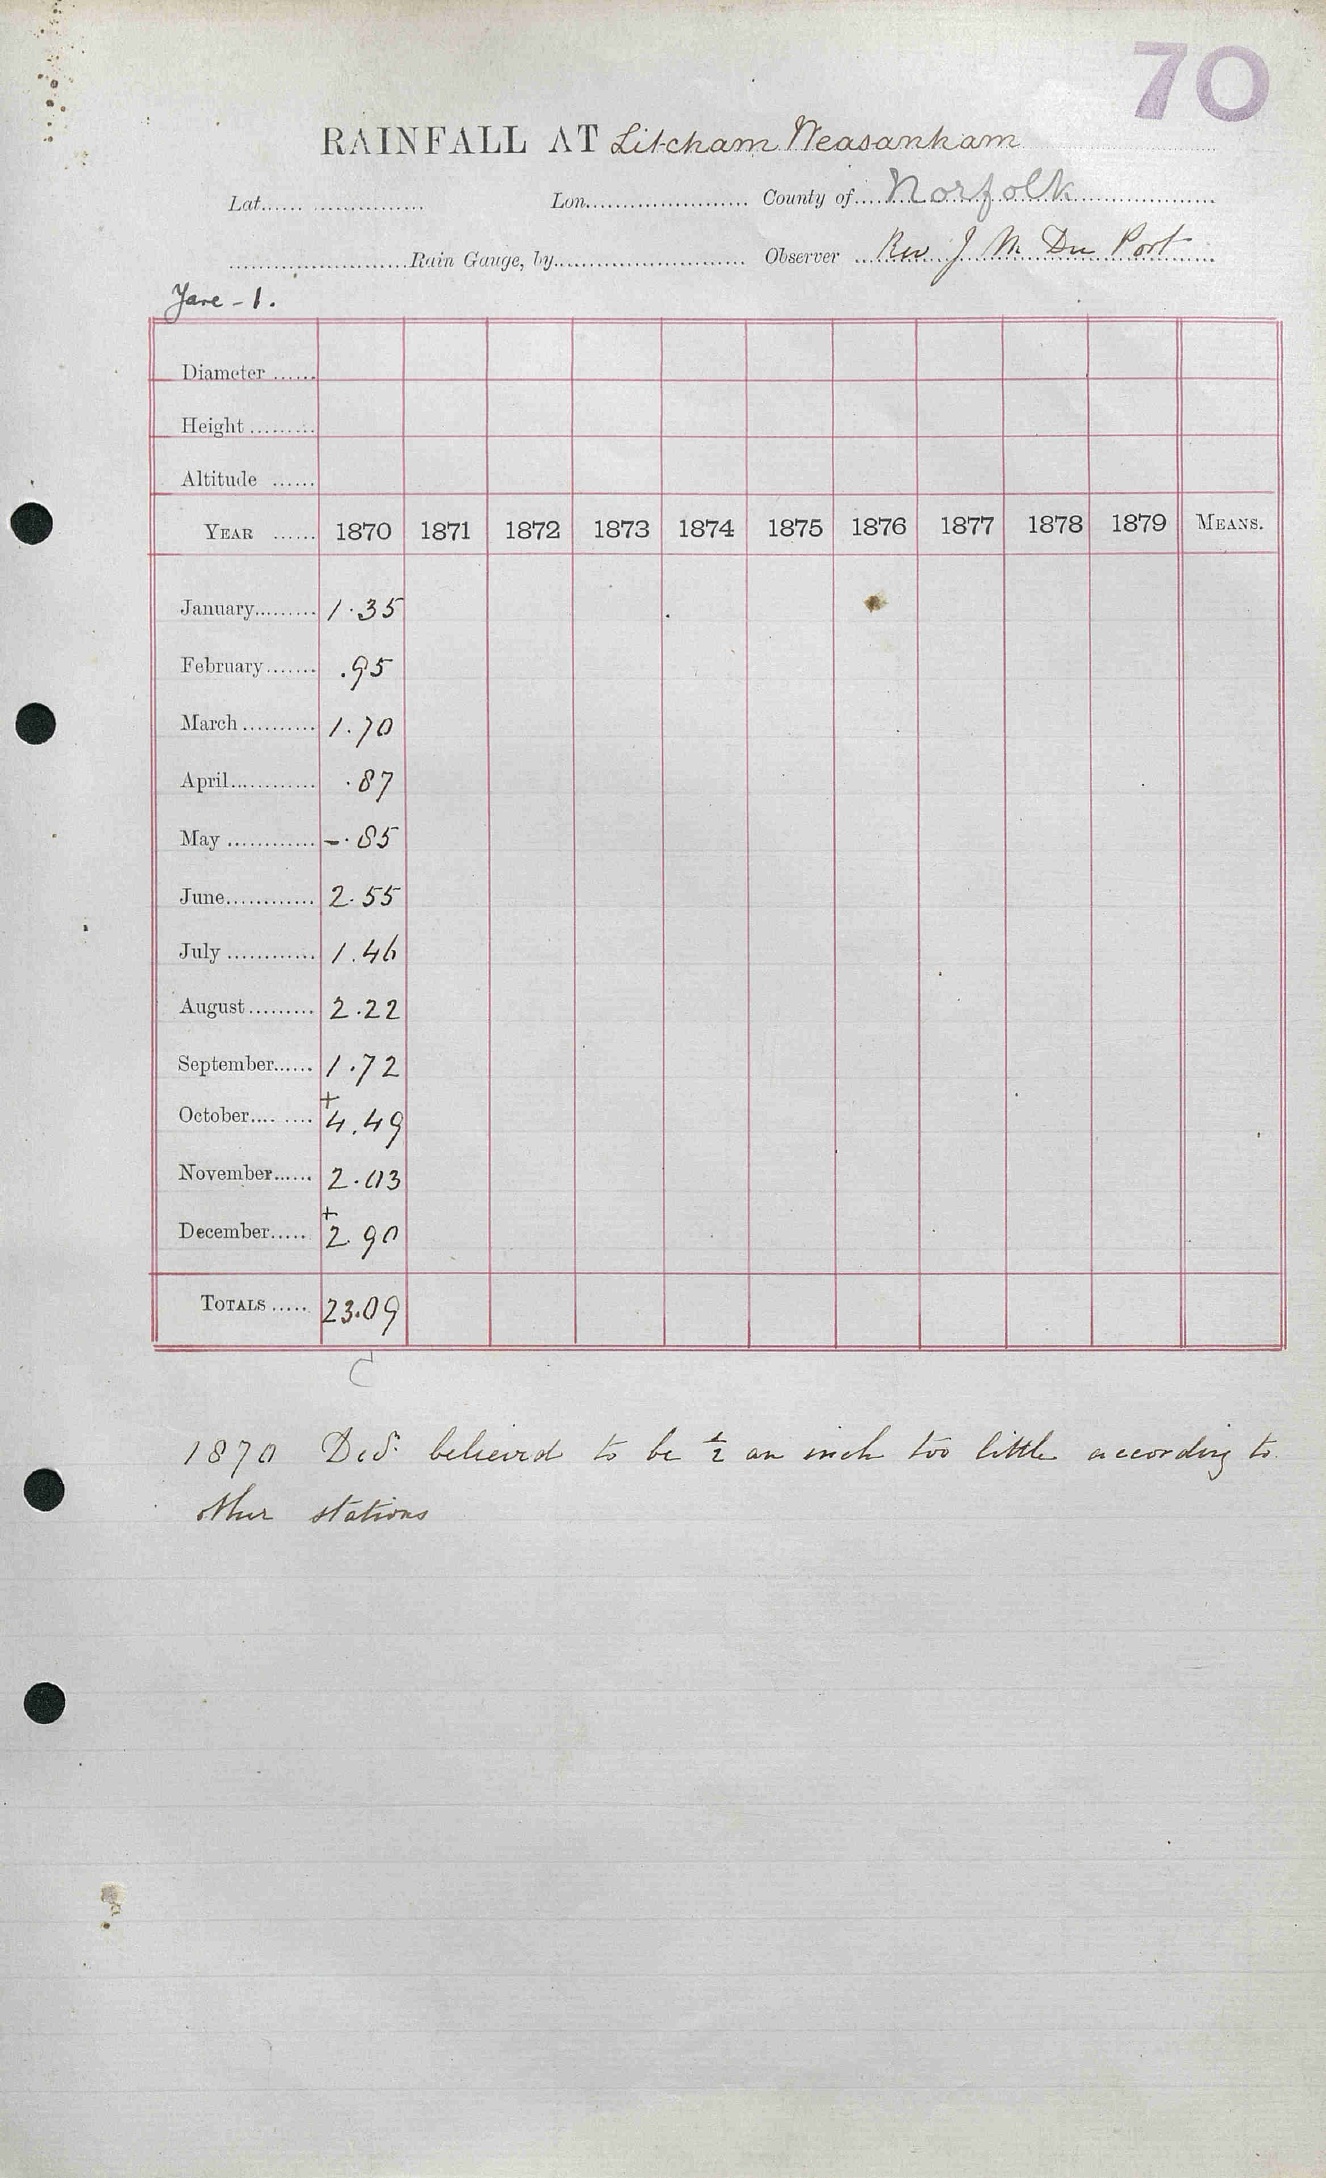 70
RAINFALL AT Litcham Weasanham
Lat. Lon. County of Norfolk
Rain Gauge, by Observer Rev J M Du Port
Yare - 1.
Diameter
Height
Altitude
YEAR 1870 1871 1872 1873 1874 1875 1876 1877 1878 1879 MEANS.
January 1.35
February .95
March 1.70
April .87
May -.85
June 2.55
July 1.46
August 2.22
September 1.72
October + 4.49
November 2.03
December + 2.90
TOTALS 23.09
C
1870 Decr believed to be ½ an inch too little according to
other stations